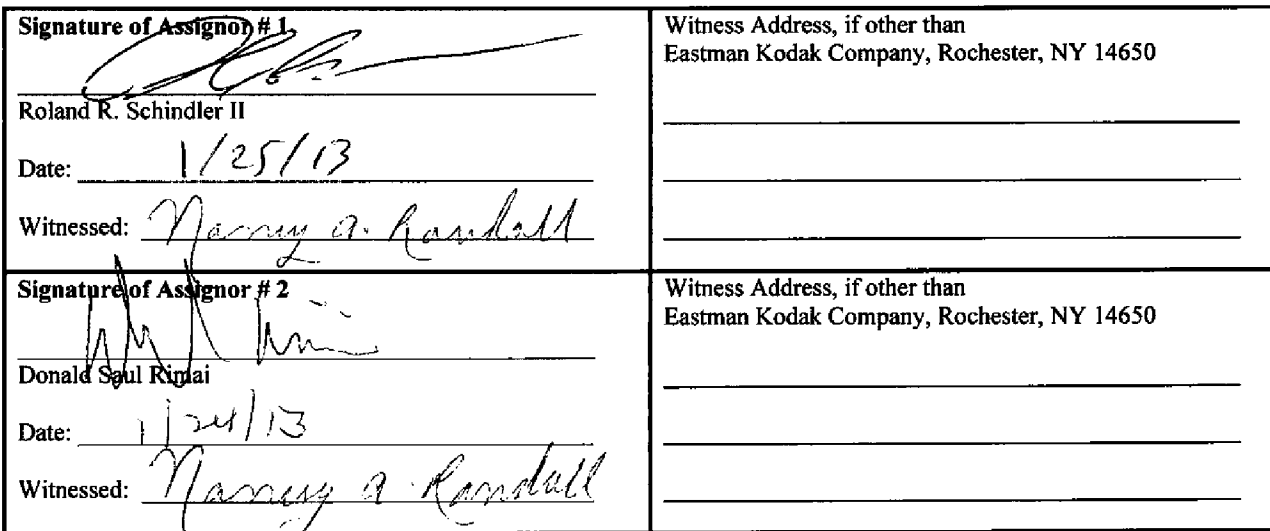 Signature of Assignor # 1
Roland R. Schindler II
Date: 1/25/13
Witnessed: Nancy A. Randall
Witness Address, if other than
Eastman Kodak Company, Rochester, NY 14650
Signature of Assignor # 2
Donald Saul Rimai
Date: 1/24/13
Witnessed: Nancy A Randall
Witness Address, if other than
Eastman Kodak Company, Rochester, NY 14650